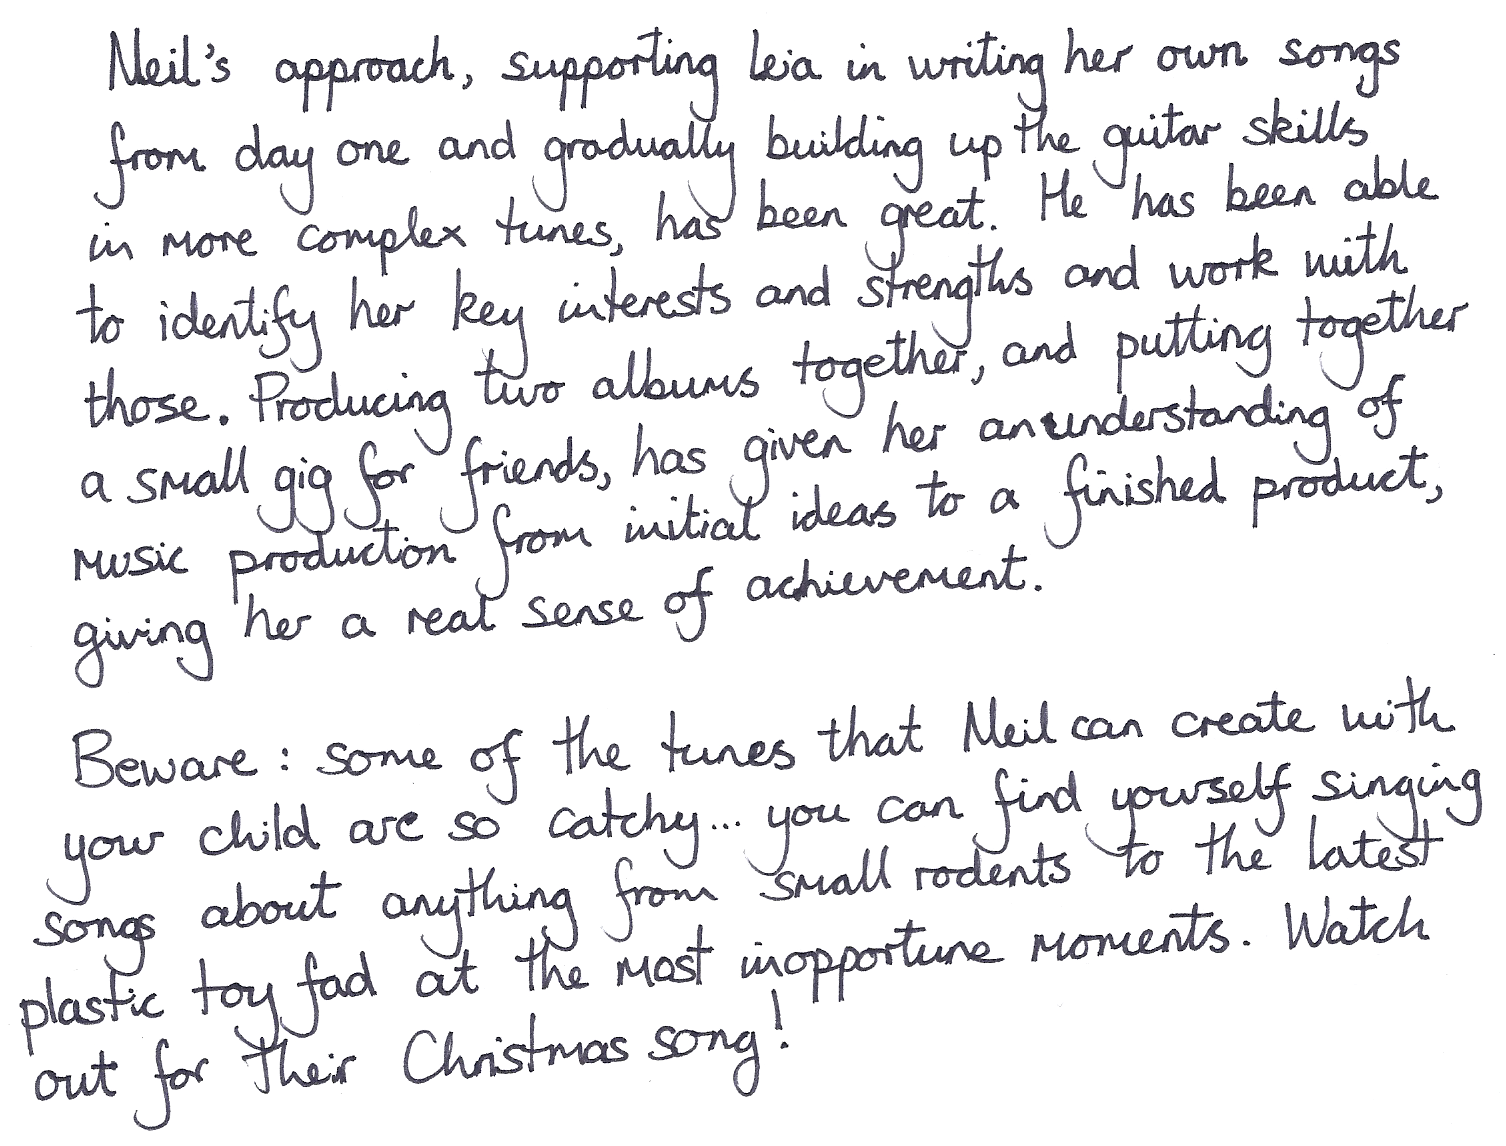 Neil's approach, supporting Leia in writing her own songs
from day one and gradually building up the guitar skills
in more complex tunes, has been great. He has been able
to identify her key interests and strengths and work with
those. Producing two albums together, and putting together
a small gig for friends, has given her an understanding of
music production from initial ideas to a finished product,
giving her a real sense of achievement.
Beware: some of the tunes that Neil can create with
your child are so catchy... you can find yourself singing
songs about anything from small rodents to the latest
plastic toy fad at the most inopportune moments. Watch
out for their Christmas song!